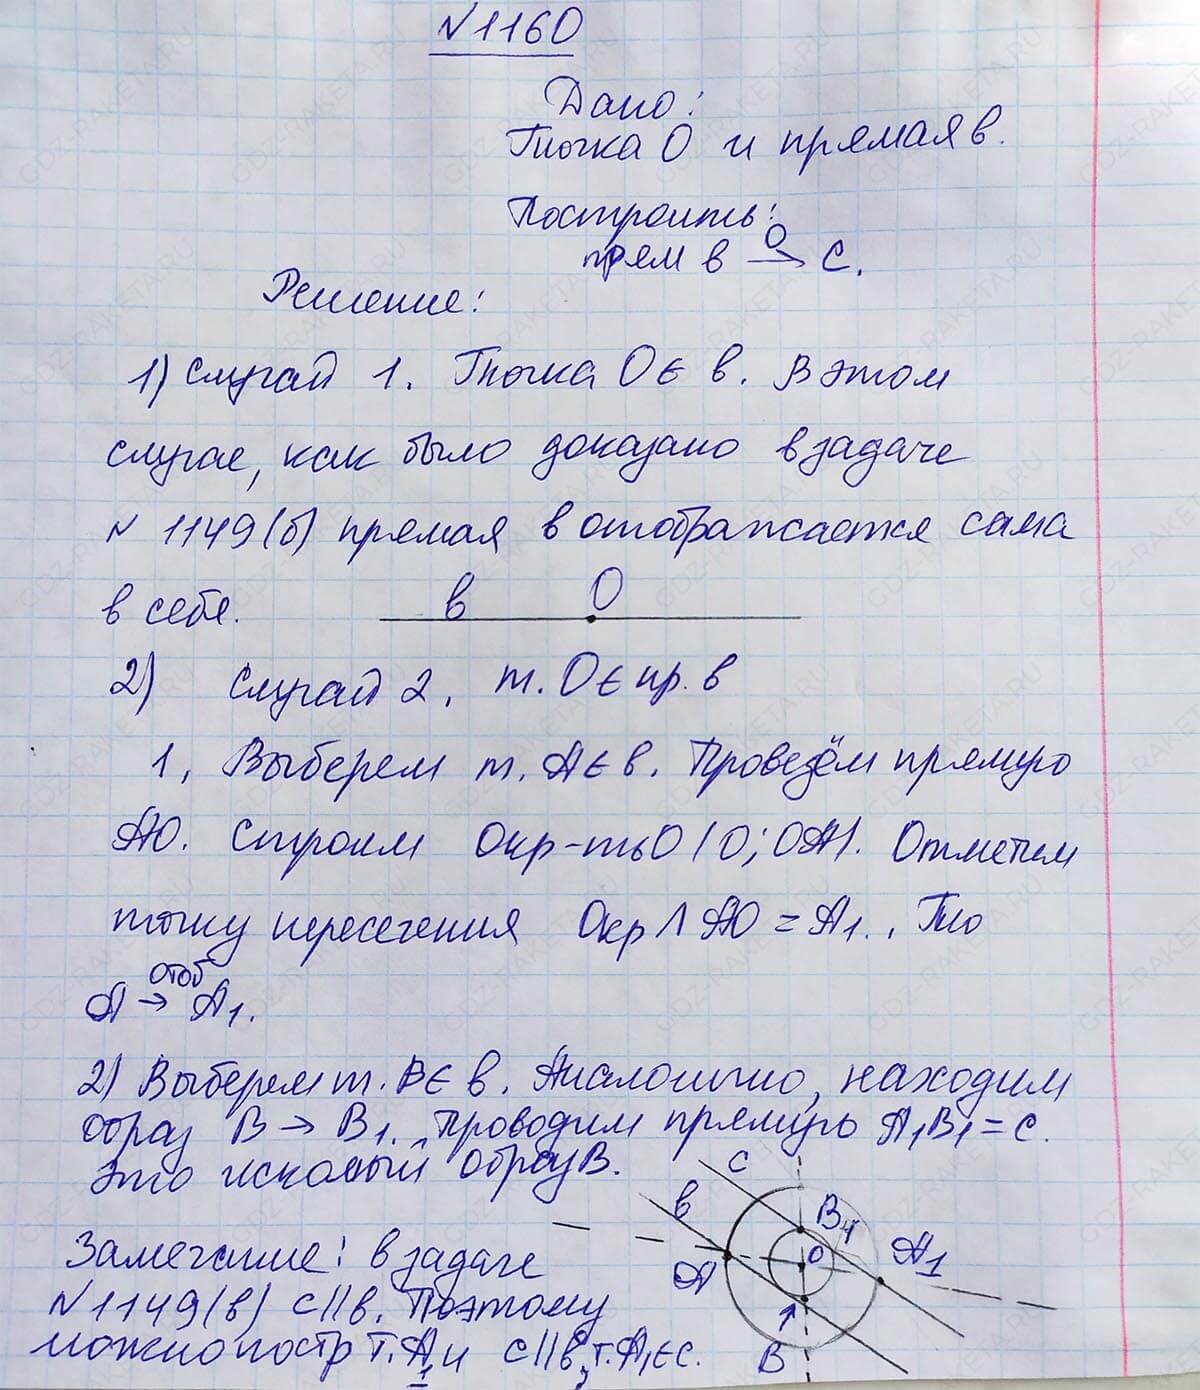 N 1160
Дано:
Точка О и прямая в.
Построить:
О
прям в → С.
Решение:
1) Случай 1. Точка О ∈ в. В этом
случае, как было доказано в задаче
N 1149(б) прямая в отображается сама
в себе.
в О
2) Случай 2. т. О ∈ пр. в
1. Выберем т. А ∈ в. Проведём прямую
АО. Строим Окр-ть О (О; ОА). Отметим
точку пересечения Окр ∩ АО = А1. То
отоб
А → А1.
2) Выберем т. В ∈ в. Аналогично, находим
образ В → В1. Проводим прямую А1В1 = с.
Это искомый образ в.
с
в
В1
О
А
А1
В
Замечание: в задаче
N 1149(в) с||в. Поэтому
можно постр т. А1 и с||в, т. А1 ∈ с.
GDZ-RAKETA.RU